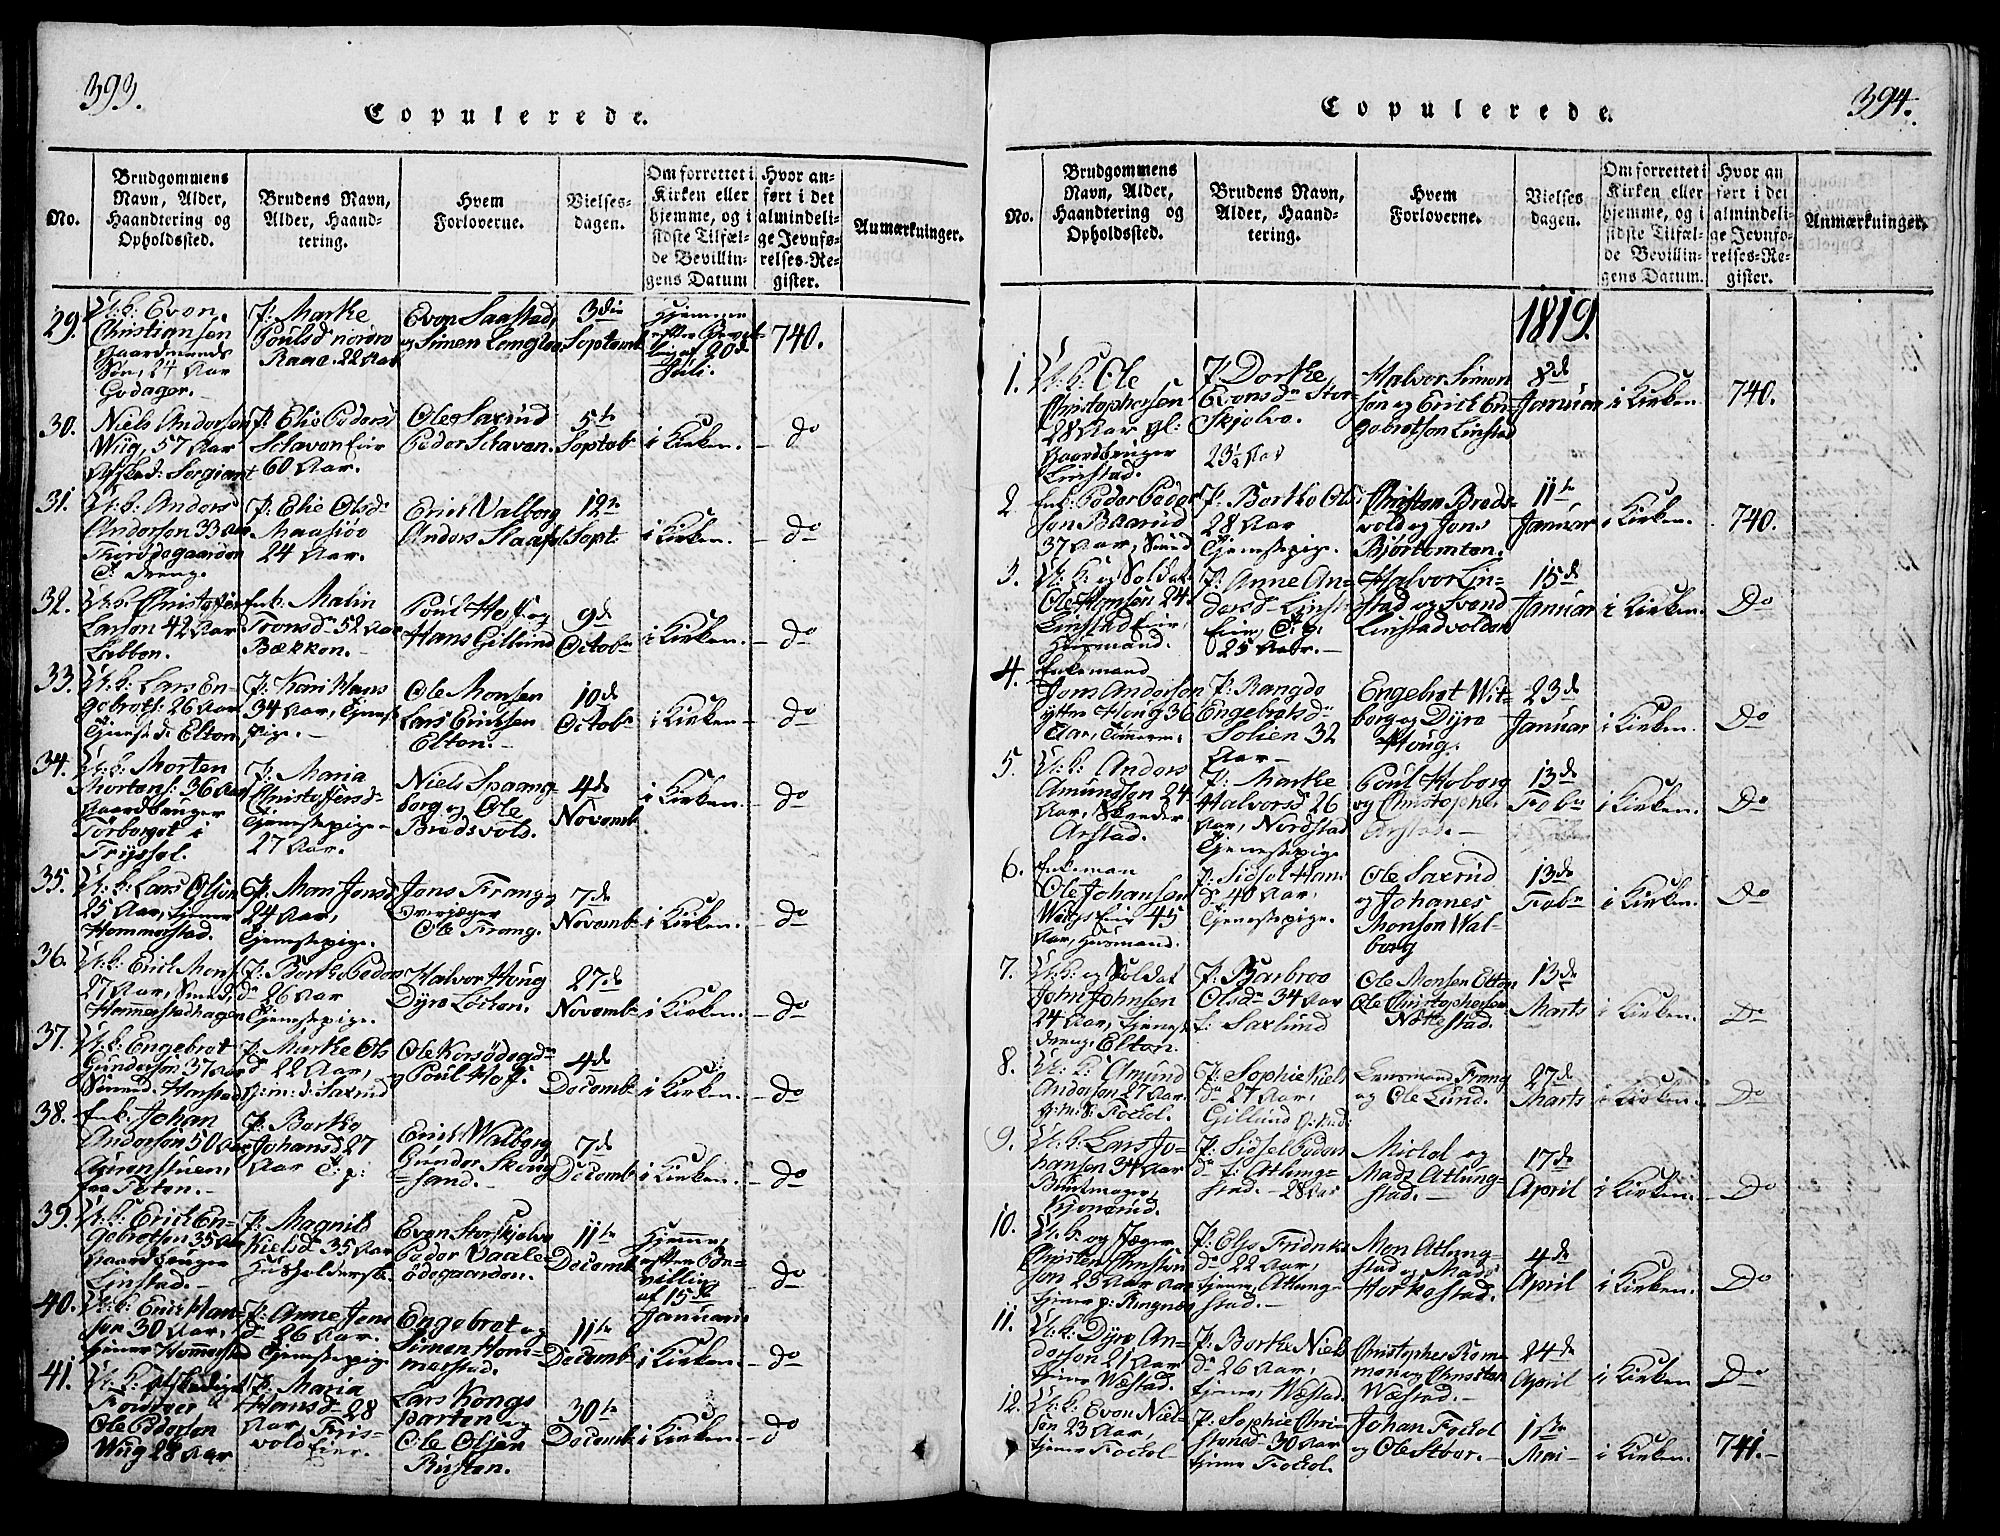 393.
Copulerede.
No.
Brudgommens
Navn, Alder,
Haandtering og
Opholdssted.
Brudens Navn,
Alder, Haand-
tering.
Hvem
Forloverne.
Vielses-
dagen.
Om forrettet i
Kirken eller
hjemme, og i
sidste Tilfæl-
de Bevillin-
gens Datum
Hvor an-
ført i det
almindeli-
ge Jevnfø-
relses-Re-
gister.
Anmærkninger.
29.
Christiansen
Gaardmands
Søn, 24 Aar
Godager.
P: Marthe
Poulsd nordre
Raae. 22 Aar
Even Saastad,
og Simen Langloe
3die
Septemb
hjemme
efter Bevil-
ling af 20de
Juli.
740.
30.
Niels Andersen
Wiig, 57 Aar
Afsked: Sergiant
P: Elie Peders
Schaven Eier
60 Aar.
Ole Saxrud
Peder Schaven.
5te
Septbr
i Kirken.
do
31.
U: k: Anders
Andersen 33 Aar
T: dreng.
P: Elie Olsdr
Maasiøe
24 Aar.
Erich Valborg
Anders
12te
Sept.
i Kirken.
do
32.
U: k: Christopher
Larsen 42 Aar
Labben.
Enk: Malin
Tronsdr 52 Aar
Bækken.
Poul Hoff og
Hans Gillund
9de
Octobr
i Kirken.
do
33.
U: k: Lars En-
gebrets: 26 Aar
Tjenest de Elton
P: Kari Hans
34 Aar, Tjeneste
Pige.
Ole Monsen
Lars Ericksen
Elton.
10de
Octobr
i Kirken
do
34.
U: k: Morten
Mortens: 36 Aar
Gaardbruger
Torberget i
Tryssel.
P: Maria
Christoffersd
Tjenestepige
27 Aar.
Niels Spaang-
berg og Ole
Brodsvold.
4de
Novemb
i Kirken.
do
35.
U: k: Lars Olsen
25 Aar, tjener
Hommerstad.
P: Mari Jonsd
24 Aar,
Tjenestepige.
Jens Frang
Overjæger
Ole Frang.
7de
Novemb
i Kirken.
do
36.
U: k: Erich Mons
27 Aar, Smed,
Hommerstadhagen
P: Berthe Peders
dr 26 Aar
Tjenestepige.
Halvor Houg
Dyre Løcken.
27de
Novemb
i Kirken.
do
37.
U: k: Engebret
Gundersen 37 Aar
Smed. Harstad
P: Marthe Ols
dr 22 Aar,
G: m: d: Saxrud
Ole Korsødegdn
og Poul Hoff.
4de
Decemb
i Kirken.
do
38.
Enk: Johan
Andersen 50 Aar
fra Teten.
P: Berthe
Johansd 27
Aar T: p:
Erich Walborg
Gunder Skiing-
sand.
7de
Decemb
i Kirken.
do
39.
U: k: Erich En-
gebretsen 35 Aar
Gaardbruger
Linstad.
P: Magnild
Kielsdr 35 Aar
Huusholderske
Even Storskjelve
Peder Vaale-
ødegaarden.
11te
Decemb
Hjemme,
efter Be-
villing
af 15de
Januari
do
40.
U: k: Erich Han-
sen 30 Aar,
tjener Hommerstad
P: Anne Jens
dr 26 Aar.
Tjenestepige
Engebret og
Simen Hom-
merstad.
11te
Decemb
i Kirken.
do
41.
U: k: Afskediget
Ole Pedersen
Wiig 28 Aar
P: Maria
Hansdr 28
Aar, Fris-
vold Eier.
Lars Kongs
parten og
Ole Olsen
Rusten.
30te
Decemb
i Kirken.
do
394.
Copulerede.
No.
Brudgommens
Navn, Alder,
Haandtering og
Opholdssted.
Brudens Navn,
Alder, Haand-
tering.
Hvem
Forloverne.
Vielses-
dagen.
Om forrettet i
Kirken eller
hjemme, og i
sidste Tilfæl-
de Bevillin-
gens Datum.
Hvor an
ført i det
almindeli-
ge Jevnfø-
relses-Re-
gister.
Anmærkninger.
1819.
1.
U: k: Ole
Christophersen
28 Aar gl:
Gaardbruger
Linstad.
P: Dorthe
Evensdr Stor
Skjelve.
23½ Aar
Halvor Simen
sen og Erich En
gebretsen Linstad
8de
Januar
i Kirken.
740.
2
Enk: Peder Peder
sen Baarud
37 Aar, Smed
P: Berthe Ols
28 Aar
Tjenestepige.
Christen Brods-
vold og Jens
Bjertomten.
11te
Januar
i Kirken.
740.
3.
U: k: og Soldat
Ole Hansen 24
Linstad Eier,
Huusmand.
P: Anne An-
dersdr Linst
Eier, T: p:
25 Aar.
Halvor Lin-
stad og Svend
Linstadvolden
15de
Januar
i Kirken.
Do
4.
Enkemand
Jens Andersen
yttre Houg 36
Aar, Tømmerm.
P: Rangdi
Engebretsdr
Solien 32
Aar
Engebret Wit-
berg og Dyre
Houg.
23de
Januar
i Kirken.
Do
5.
U: k: Anders
Amundsen 24
Aar, Skræder
Arstad.
P: Marthe
Halvorsd 26
Aar, Nordstad
Tjenestepige
Poul Hoberg
og Christopher
Arstad.
13de
Febr
i Kirken.
Do
6.
Enkeman
Ole Johansen
Wiigs Eier 45
Aar, Husmand.
P: Sidsel Hans
dr 40 Aar,
Tjenestepige.
Ole Saxrud
og Johanes
Monsen Wal-
borg
13de
Febr
i Kirken.
Do
7.
U: k: og Soldat
John Johnsen
24 Aar, tjenest
dreng Elton.
P: Barbroe
Olsdr 34 Aar
f: Saxlund
Ole Monsen Elton
Ole Christophersen
Nøttestad.
13de
Marts
i Kirken.
Do
8.
U: k: Amund
Andersen 27 Aar
G: m: S: Fockol.
P: Sophie Niels
dr 27 Aar,
Gillund G: k: d:
Lensmand Frang
og Ole Lund.
27de
Marts
i Kirken.
Do
9.
U: k: Lars Jo-
hansen 34 Aar
Kjonerud.
P: Sidsel Peders
dr f: Atlung-
stad. 28 Aar
Michel og
Mads Atlung-
stad.
17de
April
i Kirken.
Do
10.
U: k: og Jæger
Christen Christen
sen 25 Aar
tjener p: Ringnæs
P: Else Fridriks
dr 22 Aar,
tjener Atlung-
stad.
Mon Atlung-
stad og Mads
Horkestad.
4de
April
i Kirken.
Do
11.
U: k: Dyre An-
dersen 21 Aar
tjener Wæstad.
P: Berthe Niels
dr 26 Aar,
tjener Wæstad.
Christopher Rom-
men og Christian
Wæstad.
24de
April
i Kirken.
Do
12.
U: k: Even Niel-
sen 23 Aar,
tjener Fockol
P: Sophie Chri-
stensdr 30 Aar
tjener Fockol.
Johan Fockol
og Ole Stoer.
1ste
Mai
i Kirken.
741.